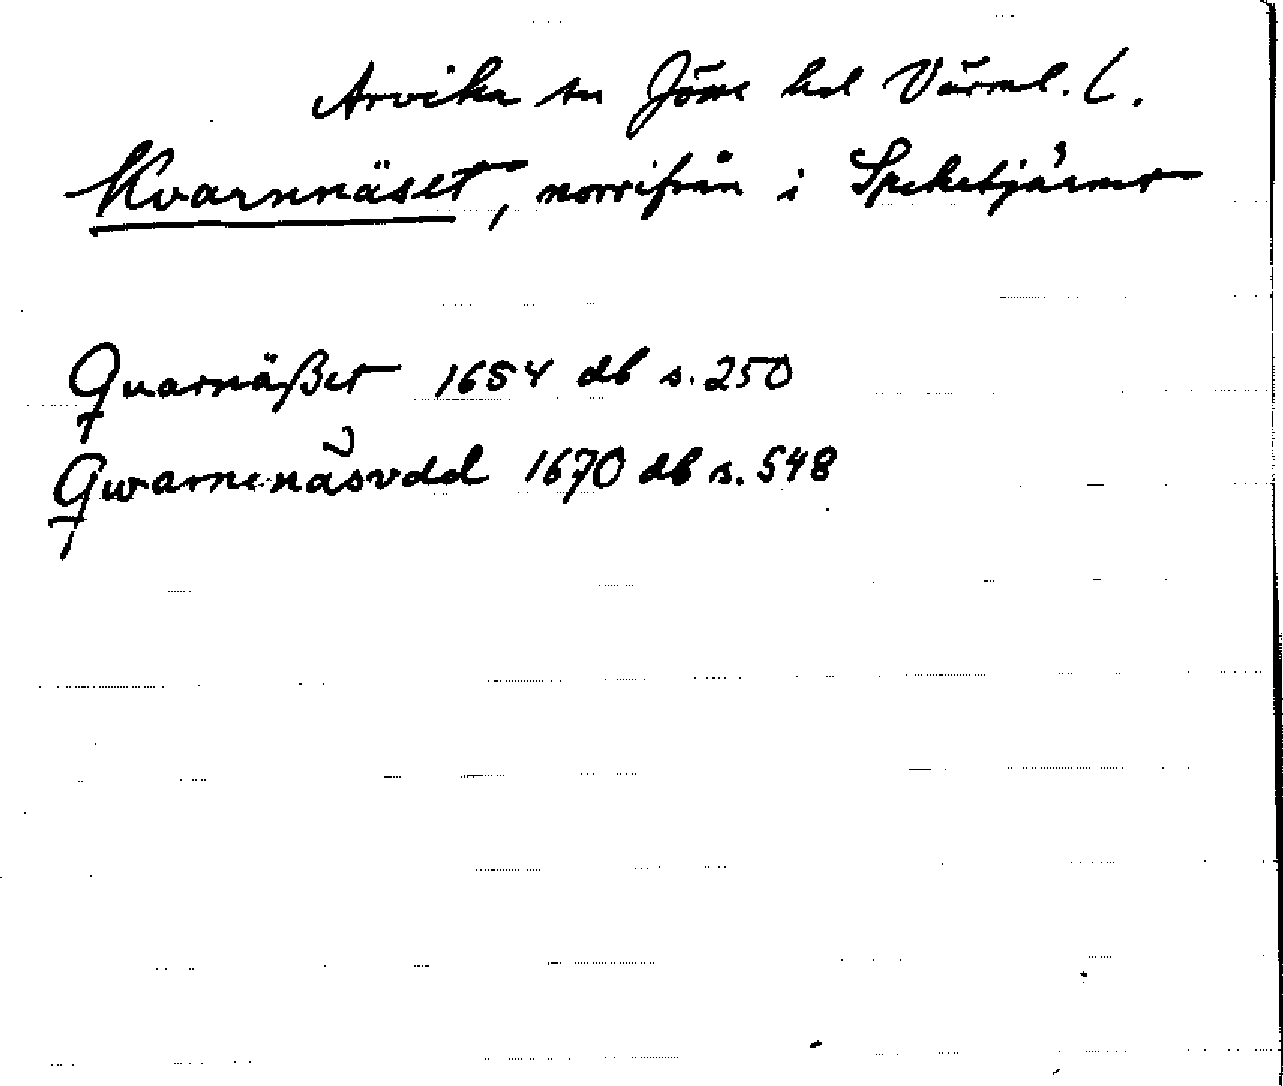 Arvika sn Jösse hd Värml. l.
Kvarnnäset, norrifrån i Speketjärnet
Quarnäßet 1654 db s. 250
Qwarnenäsvdd 1670 db s. 548